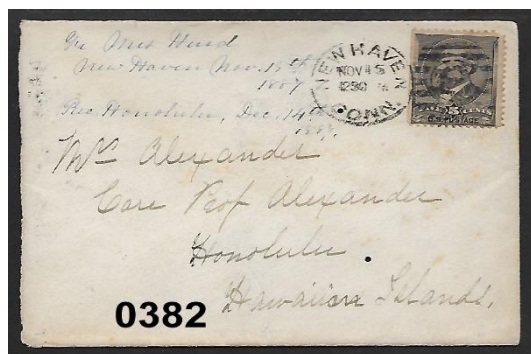 Mrs Hurd
New Haven Nov. 15th
1887
Rec Honolulu, Dec. 14th
NEW HAVEN
NOV 15
1230
CONN.
5 CENTS
U.S. POSTAGE
Mrs Alexander
Care Prof Alexander
Honolulu.
Hawaiian Islands.
0382